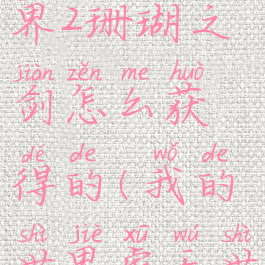 界2珊瑚之
jiàn zěn me huò
剑怎么获
dé de wǒ de
得的(我的
shì jiè xū wú shì
世界虚无世